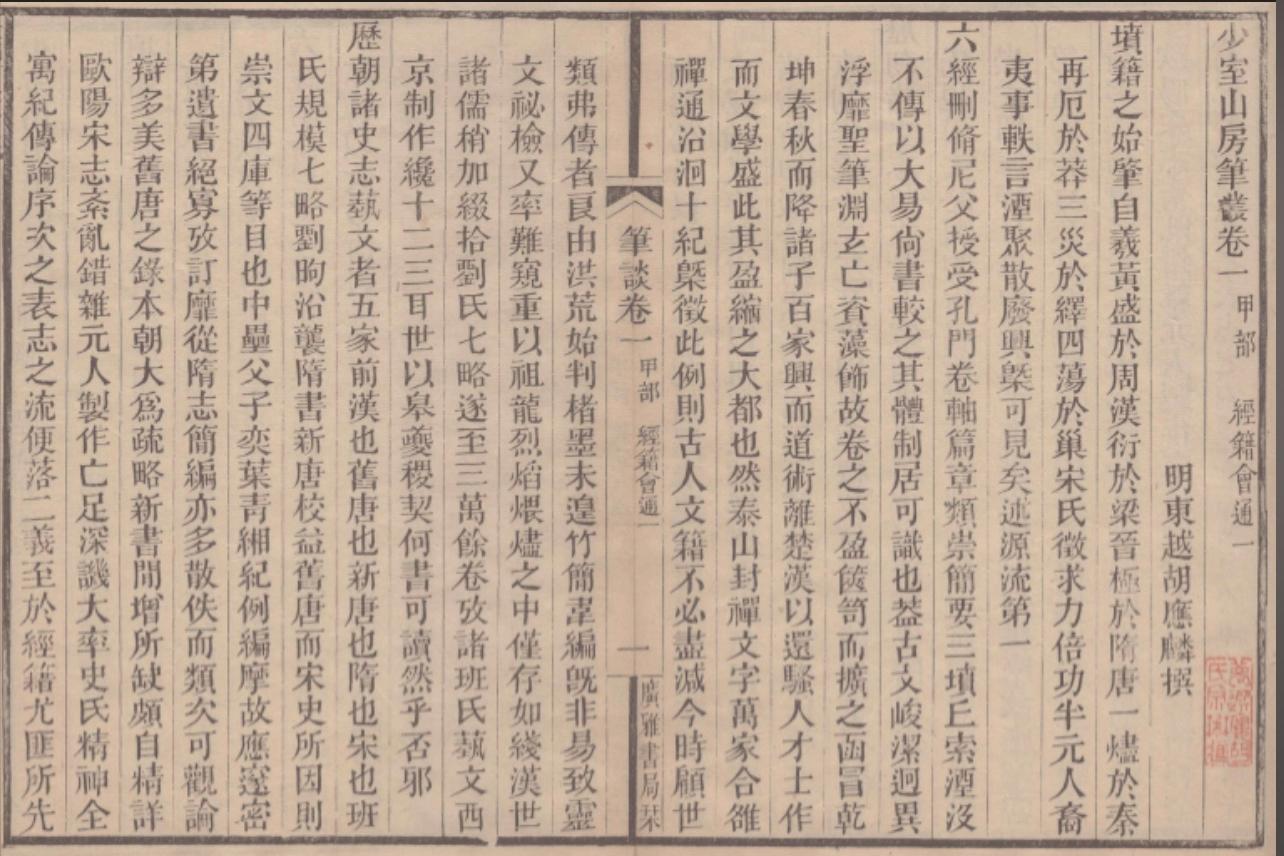 少室山房筆叢卷一 甲部 經籍會通一
明東越胡應麟撰
墳籍之始肇自羲黃盛於周漢衍於梁晉極於隋唐一燼於秦
再厄於莽三災於繹四蕩於巢宋氏徵求力倍功半元人裔
夷事軼言湮聚散廢興槩可見矣述源流第一
六經刪脩尼父授受孔門卷軸篇章類崇簡要三墳丘索湮沒
不傳以大易尙書較之其體制居可識也葢古文峻潔迥異
浮靡聖筆淵玄亡資藻飾故卷之不盈篋笥而擴之函冒乾
坤春秋而降諸子百家興而道術離楚漢以還騷人才士作
而文學盛此其盈縮之大都也然泰山封禪文字萬家合雒
禪通沿洄十紀槩徵此例則古人文籍不必盡減今時顧世
筆談卷一 甲部 經籍會通一 一 廣雅書局栞
類弗傳者良由洪荒始判楮墨未遑竹簡韋編旣非易致靈
文祕檢又率難窺重以祖龍烈焰煨燼之中僅存如綫漢世
諸儒稍加綴拾劉氏七略遂至三萬餘卷攷諸班氏藝文西
京制作纔十二三耳世以皋夔稷契何書可讀然乎否邪
歷朝諸史志藝文者五家前漢也舊唐也新唐也隋也宋也班
氏規模七略劉昫沿襲隋書新唐校益舊唐而宋史所因則
崇文四庫等目也中壘父子奕葉靑緗紀例編摩故應邃密
第遺書絕寡攷訂靡從隋志簡編亦多散佚而類次可觀論
辯多美舊唐之錄本朝大爲疏略新書閒增所缺頗自精詳
歐陽宋志紊亂錯雜元人製作亡足深譏大率史氏精神全
寓紀傳論序次之表志之流便落二義至於經籍尤匪所先